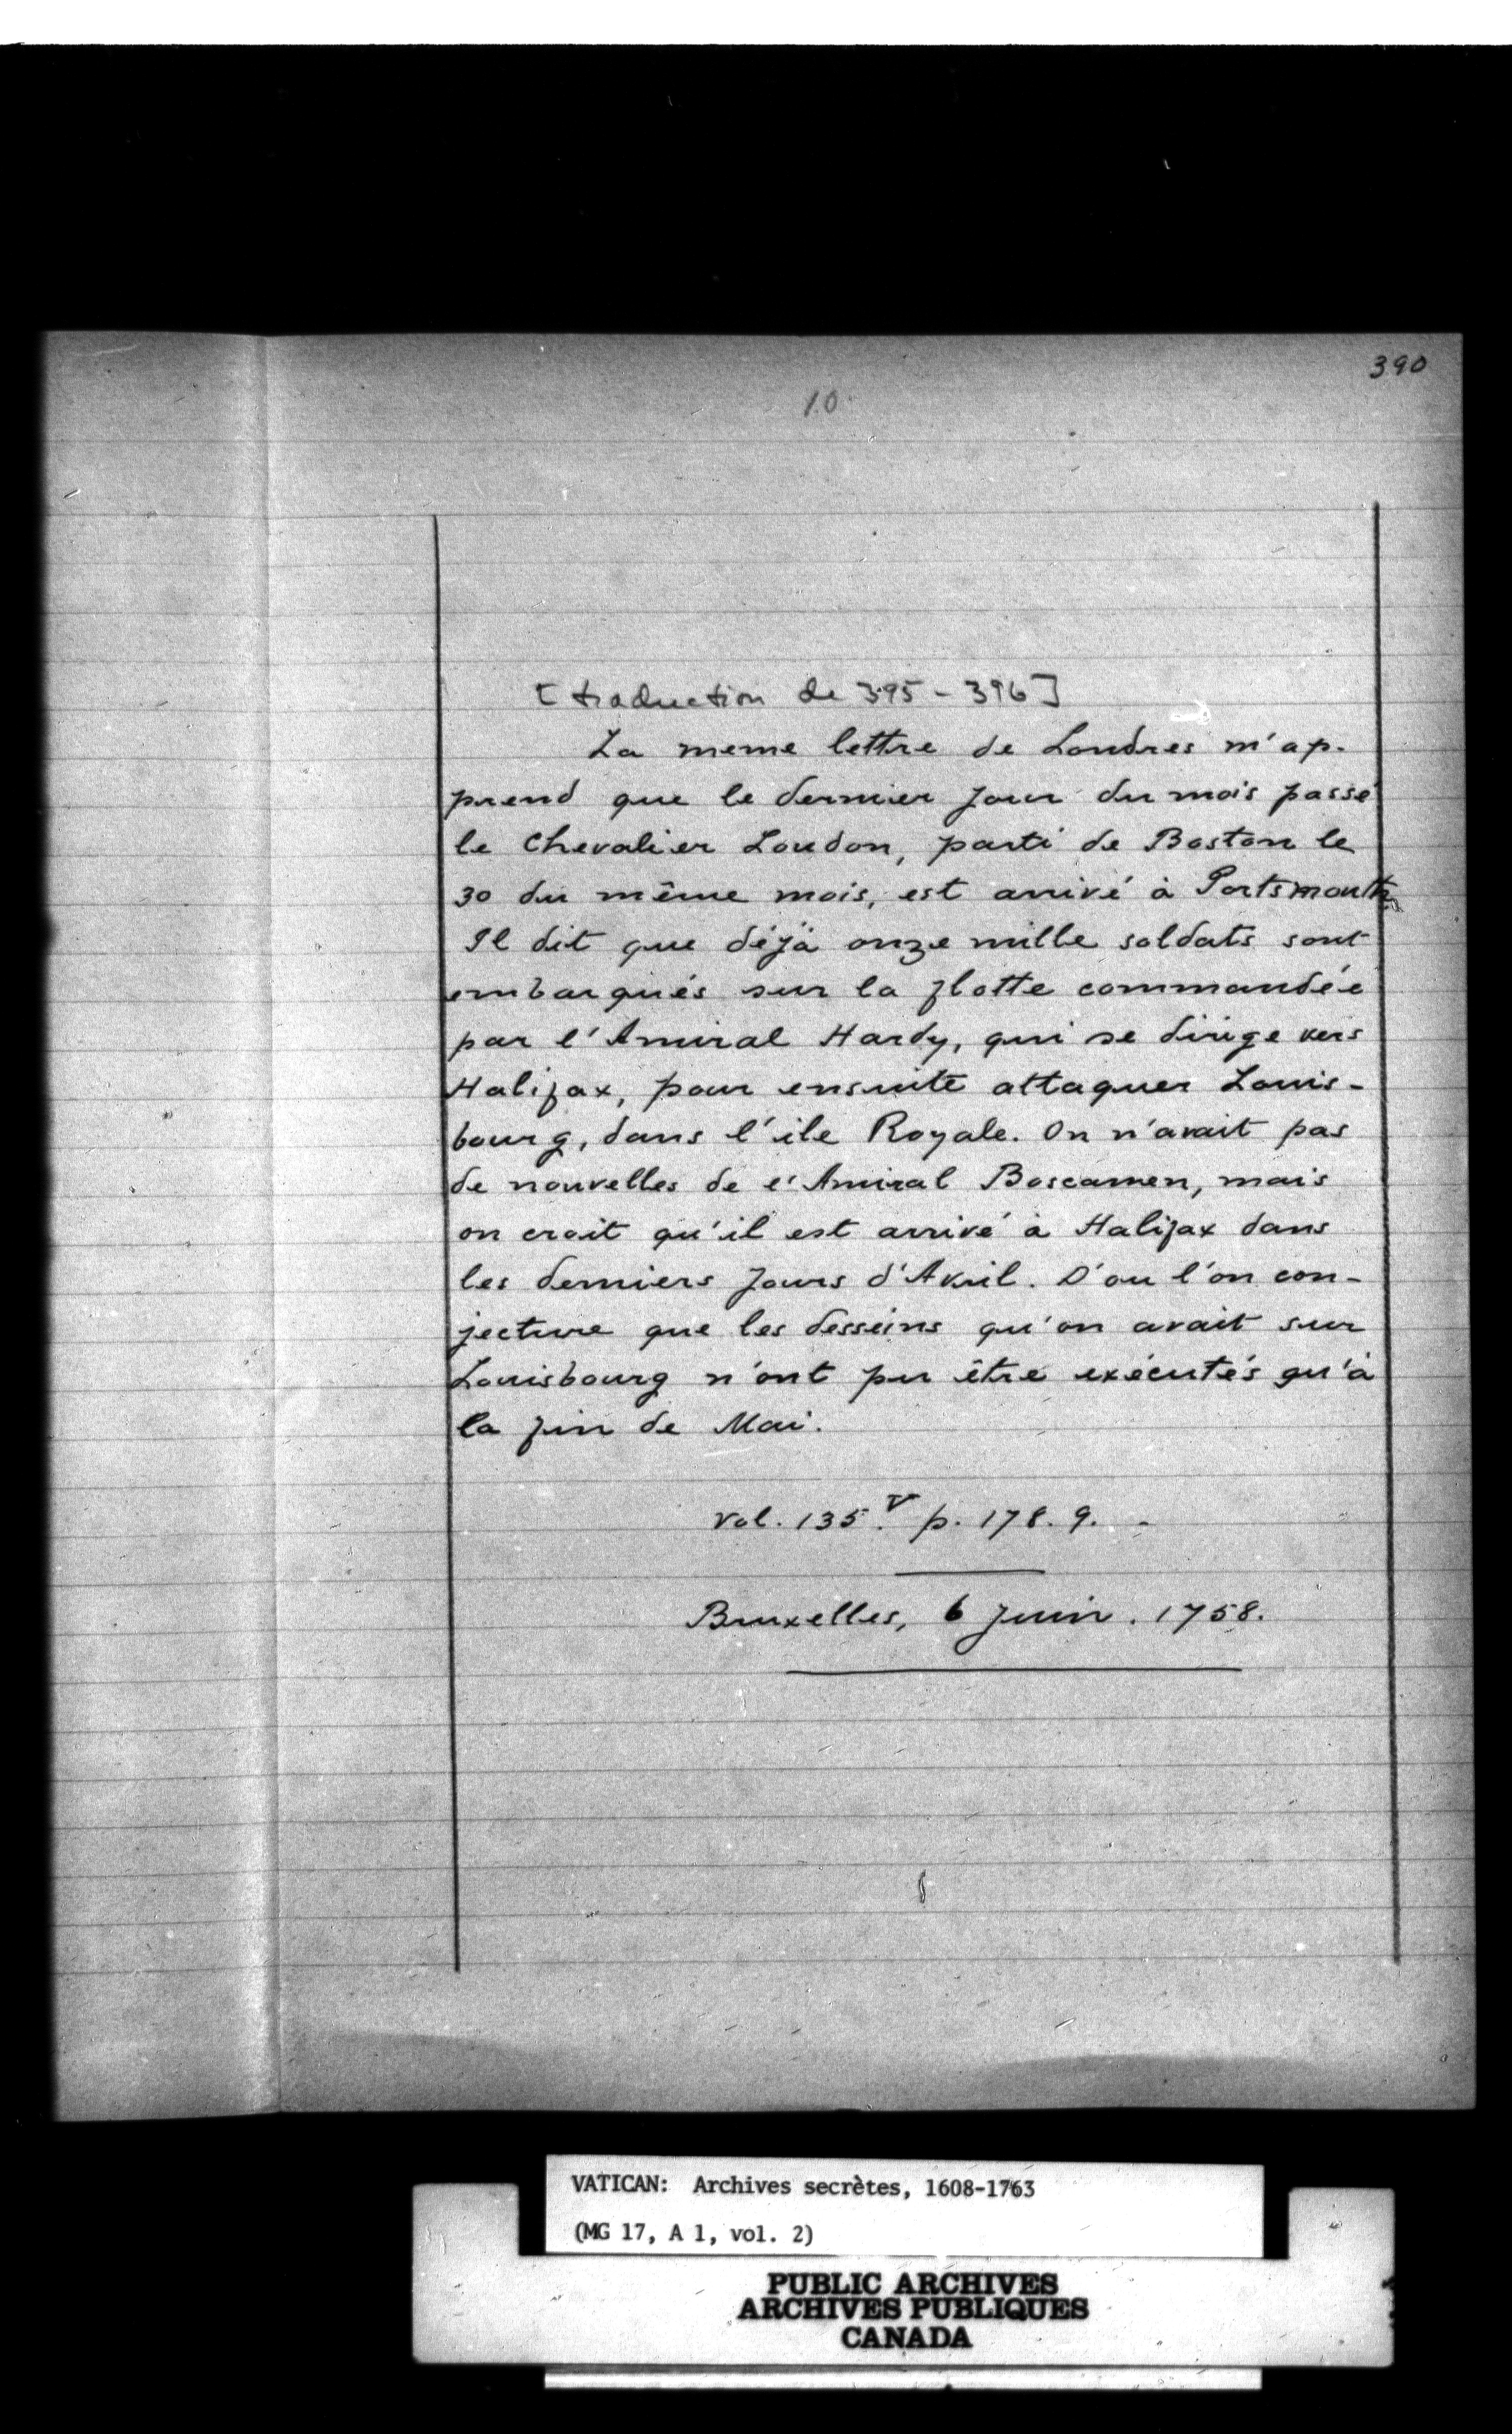 390
10
[traduction de 395-396]
La meme lettre de Londres m'ap-
prend que le dernier jour du mois passé
le Chevalier Loudon, parti de Boston le
30 du même mois, est arrivé à Portsmouth
Il dit que déjà onze mille soldats sont
embarqués sur la flotte commandée
par l'Amiral Hardy, qui se dirige vers
Halifax, pour ensuite attaquer Louis-
bourg, dans l'ile Royale. On n'avait pas
de nouvelles de l'Amiral Boscawen, mais
on croit qu'il est arrivé à Halifax dans
les derniers jours d'Avril. D'ou l'on con-
jecture que les desseins qu'on avait sur
Louisbourg n'ont pu être exécutés qu'à
la fin de Mai.
Vol. 135.V p. 178. 9. -
Bruxelles, 6 juin. 1758.
VATICAN: Archives secrètes, 1608-1763
(MG 17, A 1, vol. 2)
PUBLIC ARCHIVES
ARCHIVES PUBLIQUES
CANADA